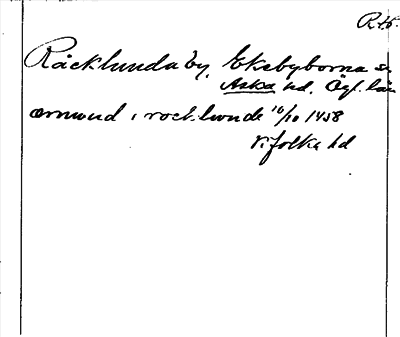 RAb.
Räcklunda by, Ekebyborna sn
Aska hd, Ögl. län
ormund i rocklunde 16/10 1458
Vifolka hd